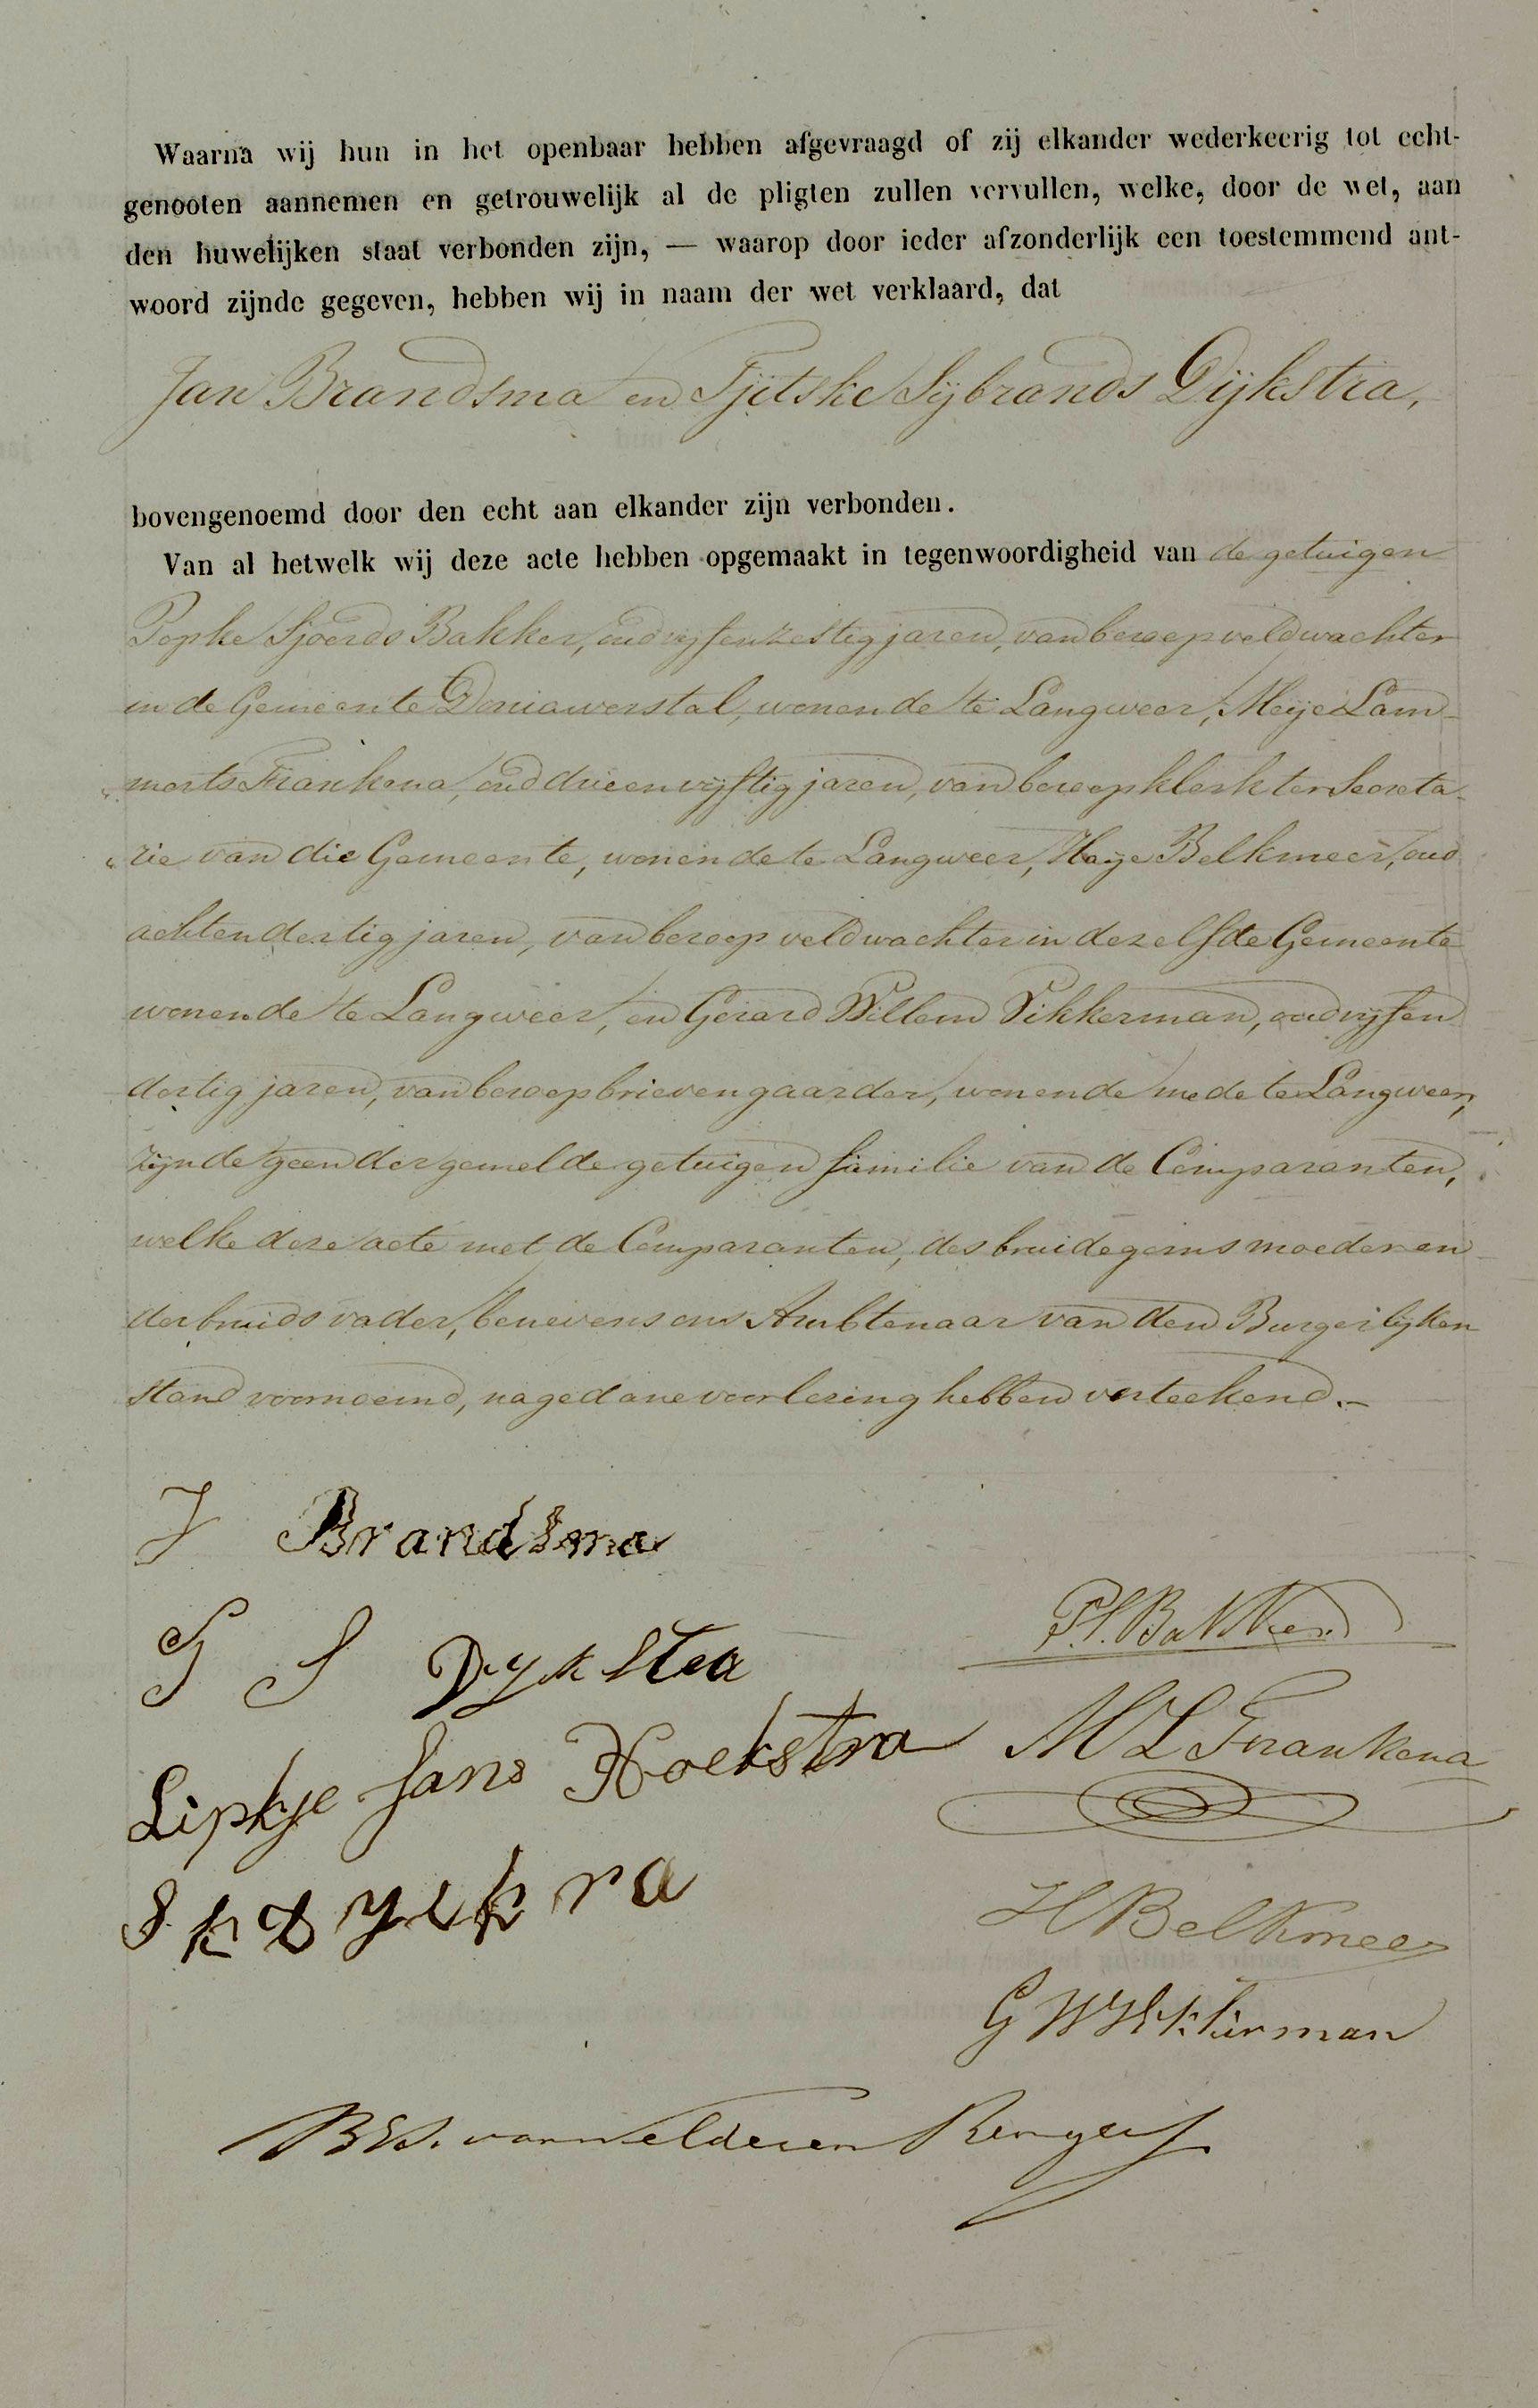 Waarna wij hun in het openbaar hebben afgevraagd of zij elkander wederkeerig tot echt-
genooten aannemen en getrouwelijk al de pligten zullen vervullen, welke, door de wet, aan
den huwelijken staat verbonden zijn, — waarop door ieder afzonderlijk een toestemmend ant-
woord zijnde gegeven, hebben wij in naam der wet verklaard, dat
Jan Brandsma en Tjitske Sijbrands Dijkstra,
bovengenoemd door den echt aan elkander zijn verbonden.
Van al hetwelk wij deze acte hebben opgemaakt in tegenwoordigheid van de getuigen
Popke Sjoerds Bakker, oud vijfenzestig jaren, van beroep veldwachter
in de Gemeente Doniawerstal, wonende te Langweer, Meije Lam-
merts Frankena, oud drieenvijftig jaren, van beroep klerk ter Secreta-
rie van die Gemeente, wonende te Langweer, Haije Belkmeer, oud
achtendertig jaren, van beroep veldwachter in dezelfde Gemeente
wonende te Langweer, en Gerard Willem Vikkerman, oud vijfen
dertig jaren, van beroep brievengaarder, wonende mede te Langweer,
zijnde geen der gemelde getuigen familie van de Comparanten,
welke deze acte met de Comparanten, des bruidegoms moeder en
der bruids vader, benevens ons Ambtenaar van den Burgerlijken
stand voornoemd, na gedane voorlezing hebben verteekend.—
J Brandsma
T S Dykstra
P.S. Bakker
Lipkje Jans Hoekstra
M L Frankena
S K
H Belkmeer
G W Vikkerman
van Welderen Rengers